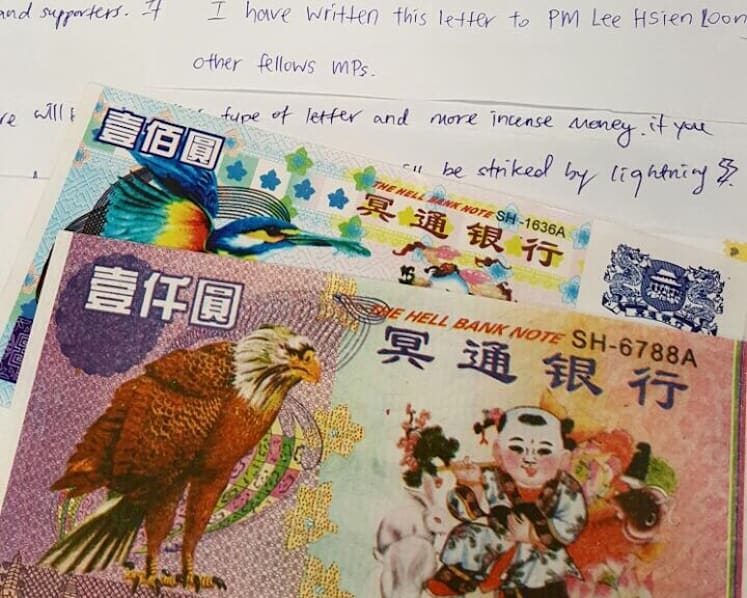 and supporters. If
I have written this letter to PM Lee Hsien Loon
other fellows MPs.
will
type of letter and more incense money. if you
be striked by lightning
壹佰圓
THE HELL BANK NOTE SH-1636A
冥通银行
壹仟圓
THE HELL BANK NOTE SH-6788A
冥通银行